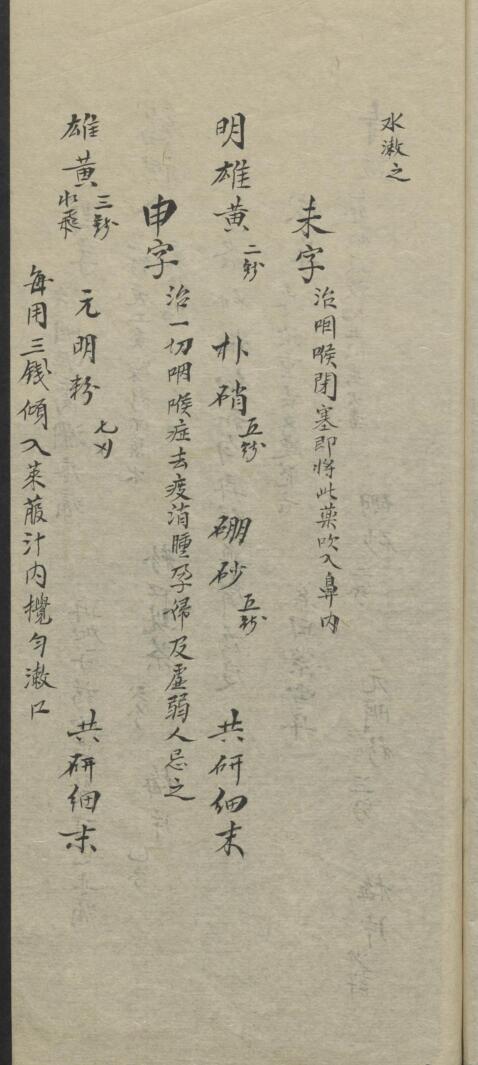 水漱之
未字 治咽喉閉塞即將此藥吹入鼻內
明雄黃 二錢 朴硝 五錢 硼砂 五錢 共研細末
申字 治一切咽喉症去疫消腫孕婦及虛弱人忌之
雄黃 三錢 水飛 元明粉 七分 共研細末
每用三錢傾入萊菔汁內攪勻漱口